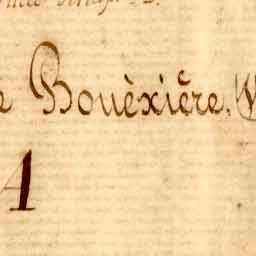 e Bouèxière.
A